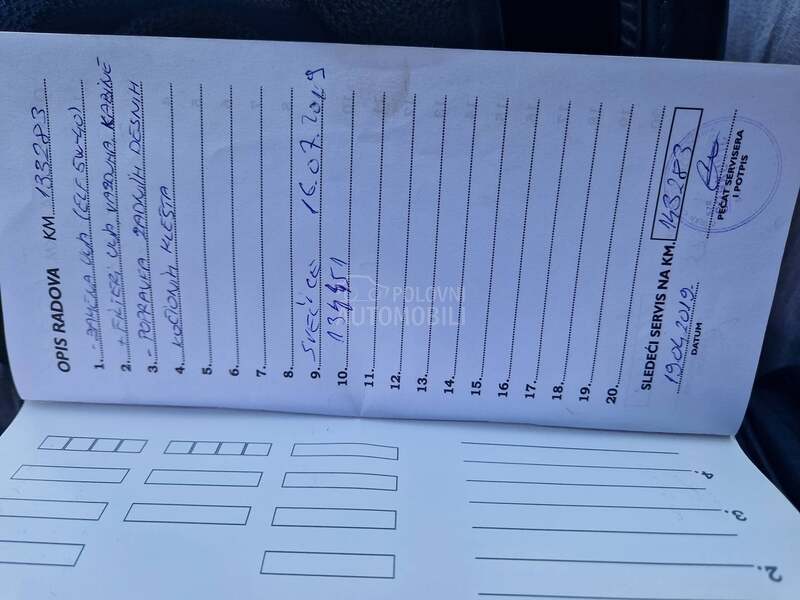 OPIS RADOVA KM 133283
1. - ZAMENA ULJA (ELF 5W-40)
2. + FILTERI ULJA VAZDUHA KABINE
3. - POPRAVKA ZADNJIH DESNIH
4. KOČIONIH KLEŠTA
5.
6.
7.
8.
9. SVEĆICE 16.07.2019
10.
11.
12.
13.
14.
15.
16.
17.
18.
19.
20.
SLEDEĆI SERVIS NA KM. 143283
19.04.2019.
DATUM
PEČAT SERVISERA
I POTPIS
POLOVNI
AUTOMOBILI
2.
3.